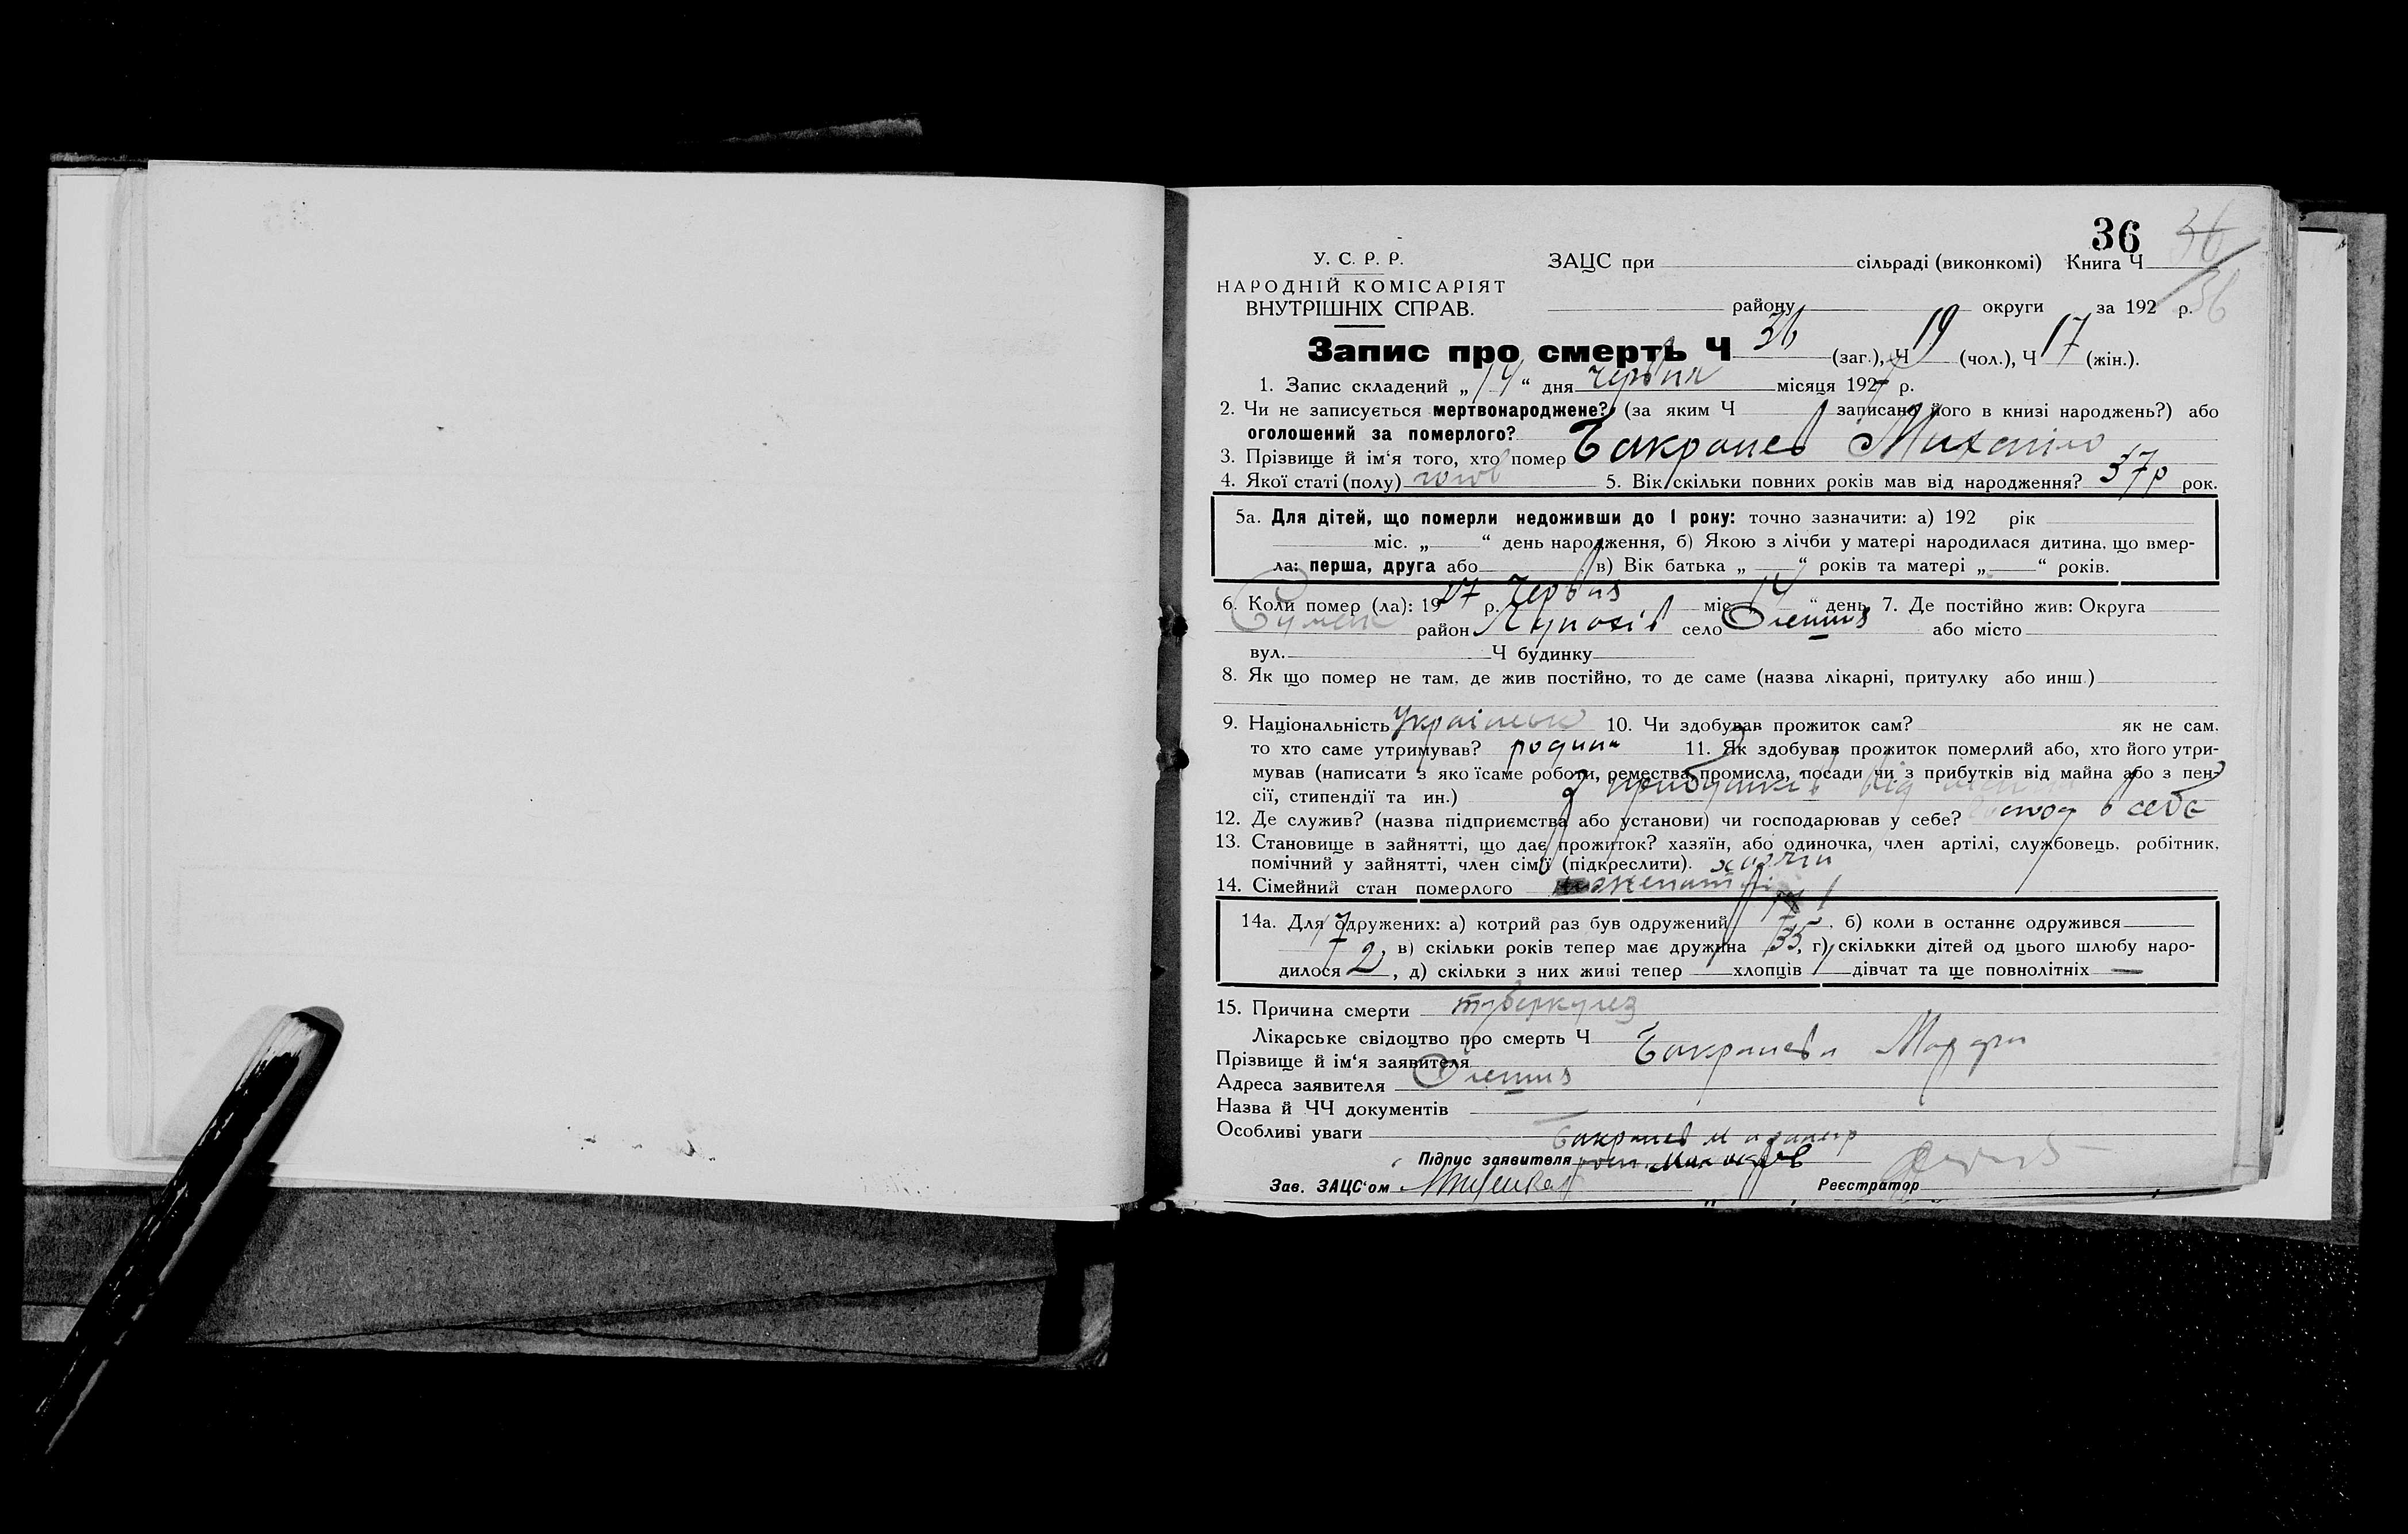 36 36
У. С. Р. Р. ЗАЦС при сільраді (виконкомі) Книга Ч
НАРОДНІЙ КОМІСАРІЯТ
ВНУТРІШНІХ СПРАВ. району округи за 192 р. 36
Запис про смерть Ч 36 (заг.), Ч 19 (чол.), Ч 17 (жін.).
1. Запис складений „14“ дня червня місяця 1927 р.
2. Чи не записується мертвонароджене? (за яким Ч записано його в книзі народжень?) або
оголошений за померлого?
3. Прізвище й ім‘я того, хто помер Бакрашев Михайло
4. Якої статі (полу) чолов 5. Вік скільки повних років мав від народження? 37 р рок.
5а. Для дітей, що померли недоживши до 1 року: точно зазначити: а) 192 рік
міс. „ “ день народження, б) Якою з лічби у матері народилася дитина, що вмер-
ла: перша, друга або в) Вік батька „ “ років та матері „ “ років.
6. Коли помер (ла): 1927 р. Червня міс. „14“ день 7. Де постійно жив: Округа
Сумськ район село або місто
вул. Ч будинку
8. Як що помер не там, де жив постійно, то де саме (назва лікарні, притулку або инш.)
9. Національність 10. Чи здобував прожиток сам? як не сам,
то хто саме утримував? родина 11. Як здобував прожиток померлий або, хто його утри-
мував (написати з яко їсаме роботи, ремества, промисла, посади чи з прибутків від майна або з пен-
сії, стипендії та ин.) З прибутків від
12. Де служив? (назва підприємства або установи) чи господарював у себе? господ в себе
13. Становище в зайнятті, що дає прожиток? хазяїн, або одиночка, член артілі, службовець, робітник,
помічний у зайнятті, член сім‘ї (підкреслити). хазяїн
14. Сімейний стан померлого
14а. Для одружених: а) котрий раз був одружений 1, б) коли в останнє одружився
в) скільки років тепер має дружина 35, г) скількки дітей од цього шлюбу наро-
дилося 2, д) скільки з них живі тепер хлопців дівчат та ще повнолітніх —
15. Причина смерти туберкулез
Лікарське свідоцтво про смерть Ч
Прізвище й ім‘я заявителя Бакрашева
Адреса заявителя
Назва й ЧЧ документів
Особливі уваги
Підпис заявителя
Зав. ЗАЦС‘ом Реєстратор